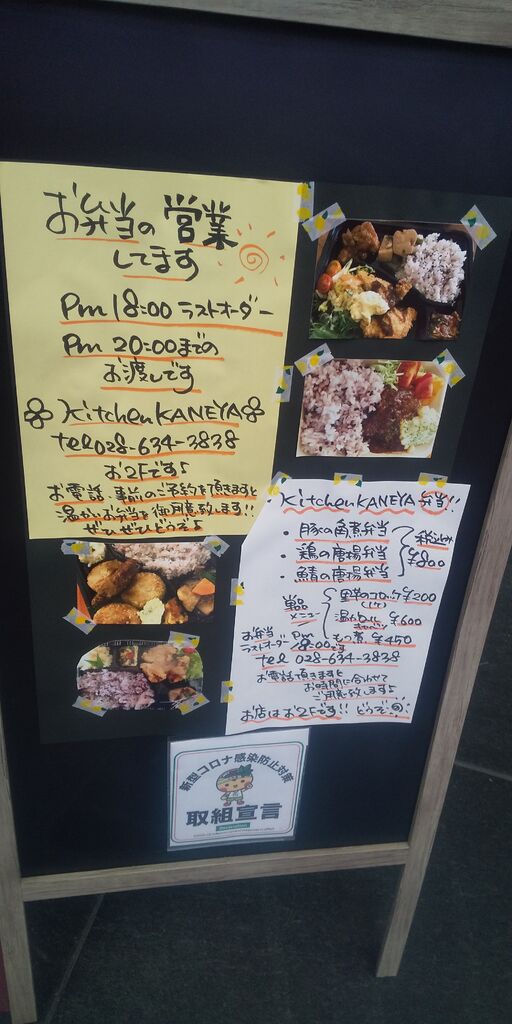 お弁当の営業
してます
Pm 18:00 ラストオーダー
Pm 20:00までの
お渡しです
Kitchen KANEYA
tel 028-634-3838
お2Fです♪
お電話 事前のご予約を頂きますと
温かいお弁当を御用意致します!!
ぜひぜひどうぞ♪
Kitchen KANEYA 弁当!!
・豚の角煮弁当
・鶏の唐揚弁当
・鯖の唐揚弁当
税込み
¥800
単品
メニュー
野菜のコロッケ ¥200
¥600
もつ煮 ¥450
お弁当
ラストオーダー Pm 18:00です
tel 028-634-3838
お電話頂きますと
お時間に合わせて
ご用意致します♪
お店はお2Fです!! どうぞ
新型コロナ感染防止対策
取組宣言